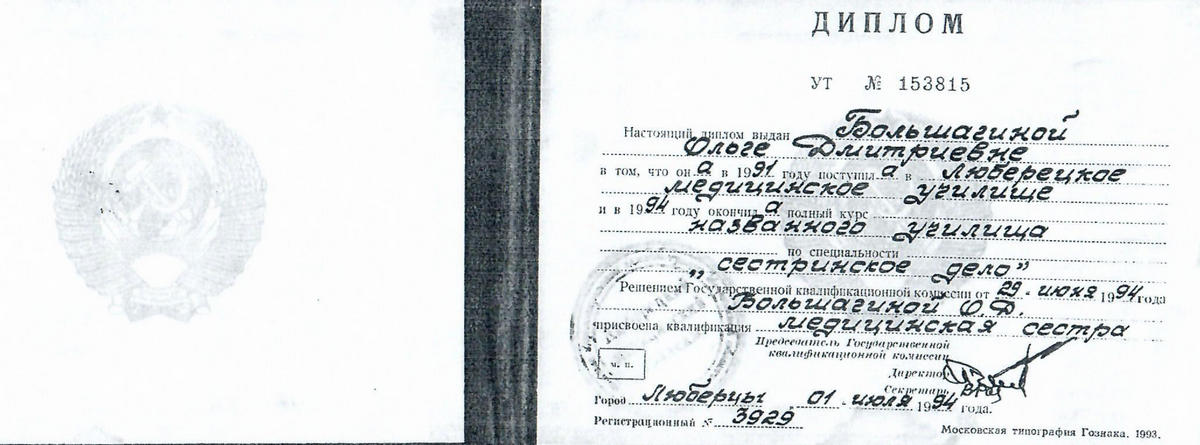 ДИПЛОМ
УТ № 153815
Настоящий диплом выдан Большагиной
Ольге Дмитриевне
в том, что он а в 1991 году поступил а в Люберецкое
медицинское училище
и в 1994 году окончил а полный курс
названного училища
по специальности
„сестринское дело”
Решением Государственной квалификационной комиссии от 29 июня 1994 года
Большагиной О.Д.
присвоена квалификация медицинская сестра
Председатель Государственной
квалификационной комиссии
Директор
Секретарь
м. п.
Город Люберцы 01 июля 1994 года.
Регистрационный № 3929
Московская типография Гознака. 1993.